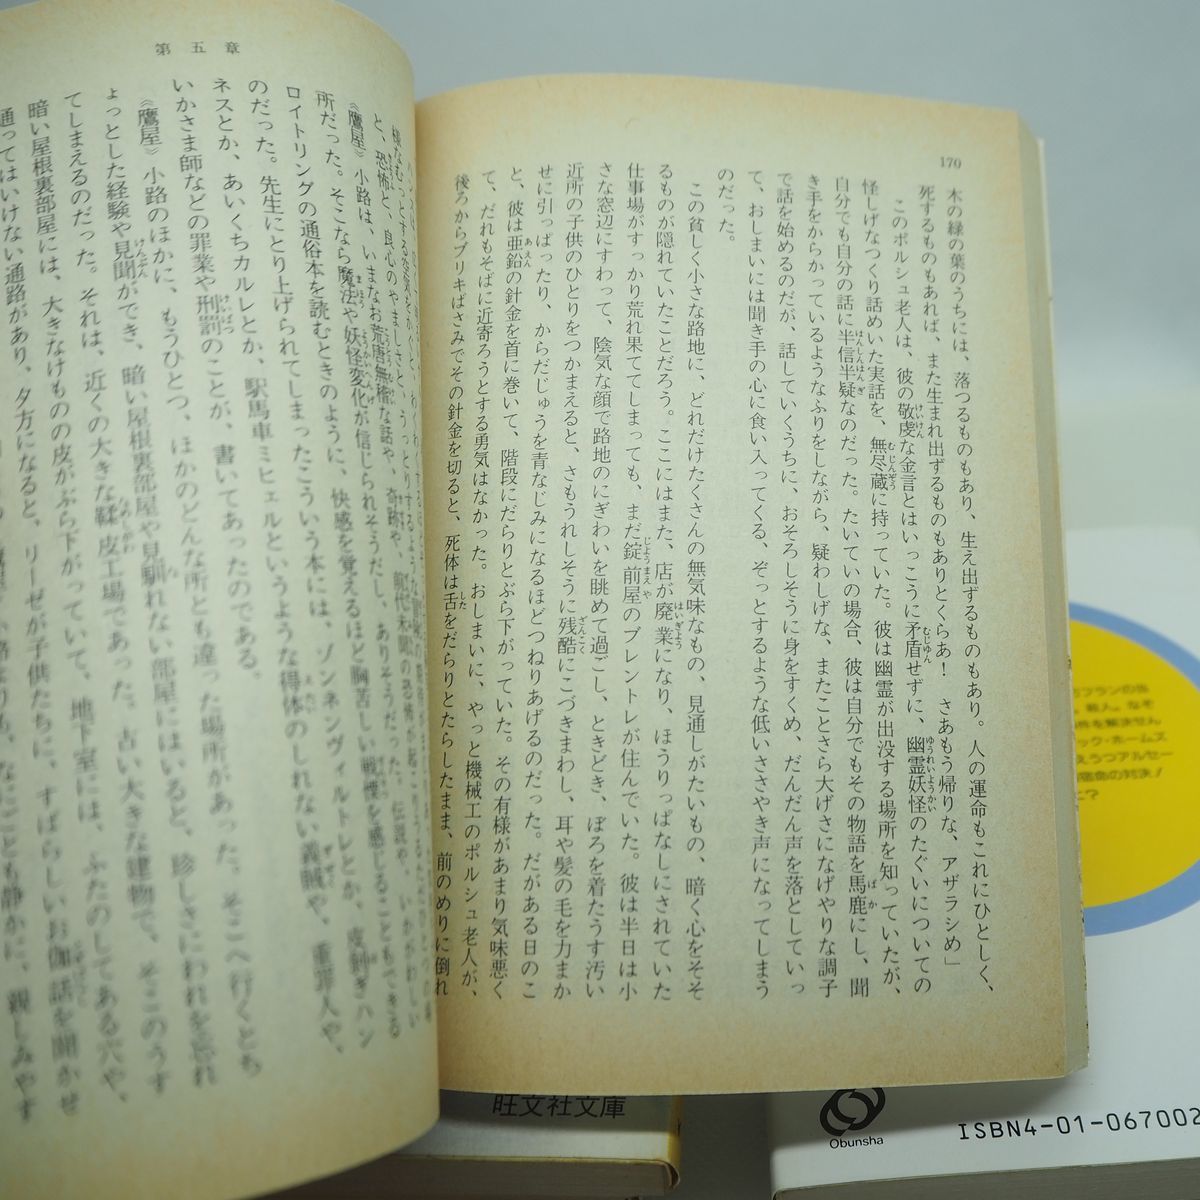 170
木の緑の葉のうちには、落つるものもあり、生え出ずるものもあり。人の運命もこれにひとしく、
死するものもあれば、また生まれ出ずるものもありとくらあ！　さあもう帰りな、アザラシめ」
このポルシュ老人は、彼の敬虔な金言とはいっこうに矛盾せずに、幽霊妖怪のたぐいについての
怪しげなつくり話めいた実話を、無尽蔵に持っていた。彼は幽霊が出没する場所を知っていたが、
自分でも自分の話に半信半疑なのだった。たいていの場合、彼は自分でもその物語を馬鹿にし、聞
き手をからかっているようなふりをしながら、疑わしげな、またことさら大げさになげやりな調子
で話を始めるのだが、話していくうちに、おそろしそうに身をすくめ、だんだん声を落としていっ
て、おしまいには聞き手の心に食い入ってくる、ぞっとするような低いささやき声になってしまう
のだった。
この貧しく小さな路地に、どれだけたくさんの無気味なもの、見通しがたいもの、暗く心をそそ
るものが隠れていたことだろう。ここにはまた、店が廃業になり、ほうりっぱなしにされていた
仕事場がすっかり荒れ果ててしまっても、まだ錠前屋のブレントレが住んでいた。彼は半日は小
さな窓辺にすわって、陰気な顔で路地のにぎわいを眺めて過ごし、ときどき、ぼろを着たうす汚い
近所の子供のひとりをつかまえると、さもうれしそうに残酷にこづきまわし、耳や髪の毛を力まか
せに引っぱったり、からだじゅうを青なじみになるほどつねりあげるのだった。だがある日のこ
と、彼は亜鉛の針金を首に巻いて、階段にだらりとぶら下がっていた。その有様があまり気味悪く
て、だれもそばに近寄ろうとする勇気はなかった。おしまいに、やっと機械工のポルシュ老人が、
後ろからブリキばさみでその針金を切ると、死体は舌をだらりとたらしたまま、前のめりに倒れ
第五章
と、恐怖と、良心のやましさと、うっとりするような
《鷹屋》小路は、いまなお荒唐無稽な話や、奇跡や、前代未聞の恐怖が
所だった。そこなら魔法や妖怪変化が信じられそうだし、ありそうだった。伝説や、いかがわしい
ロイトリングの通俗本を読むときのように、快感を覚えるほど胸苦しい戦慄を感じることもできる
のだった。先生にとり上げられてしまったこういう本には、ゾンネンヴィルトレとか、皮剝ぎハン
ネスとか、あいくちカルレとか、駅馬車ミヒェルというような得体のしれない義賊や、重罪人や、
いかさま師などの罪業や刑罰のことが、書いてあったのである。
《鷹屋》小路のほかに、もうひとつ、ほかのどんな所とも違った場所があった。そこへ行くとち
ょっとした経験や見聞ができ、暗い屋根裏部屋や見馴れない部屋にはいると、珍しさにわれを忘れ
てしまえるのだった。それは、近くの大きな鞣皮工場であった。古い大きな建物で、そこのうす
暗い屋根裏部屋には、大きなけものの皮がぶら下がっていて、地下室には、ふたのしてある穴や、
通ってはいけない通路があり、夕方になると、リーゼが子供たちに、すばらしいお伽話を聞かせ
なにごとも静かに、親しみやす
旺文社文庫
Obunsha
ISBN4-01-067002